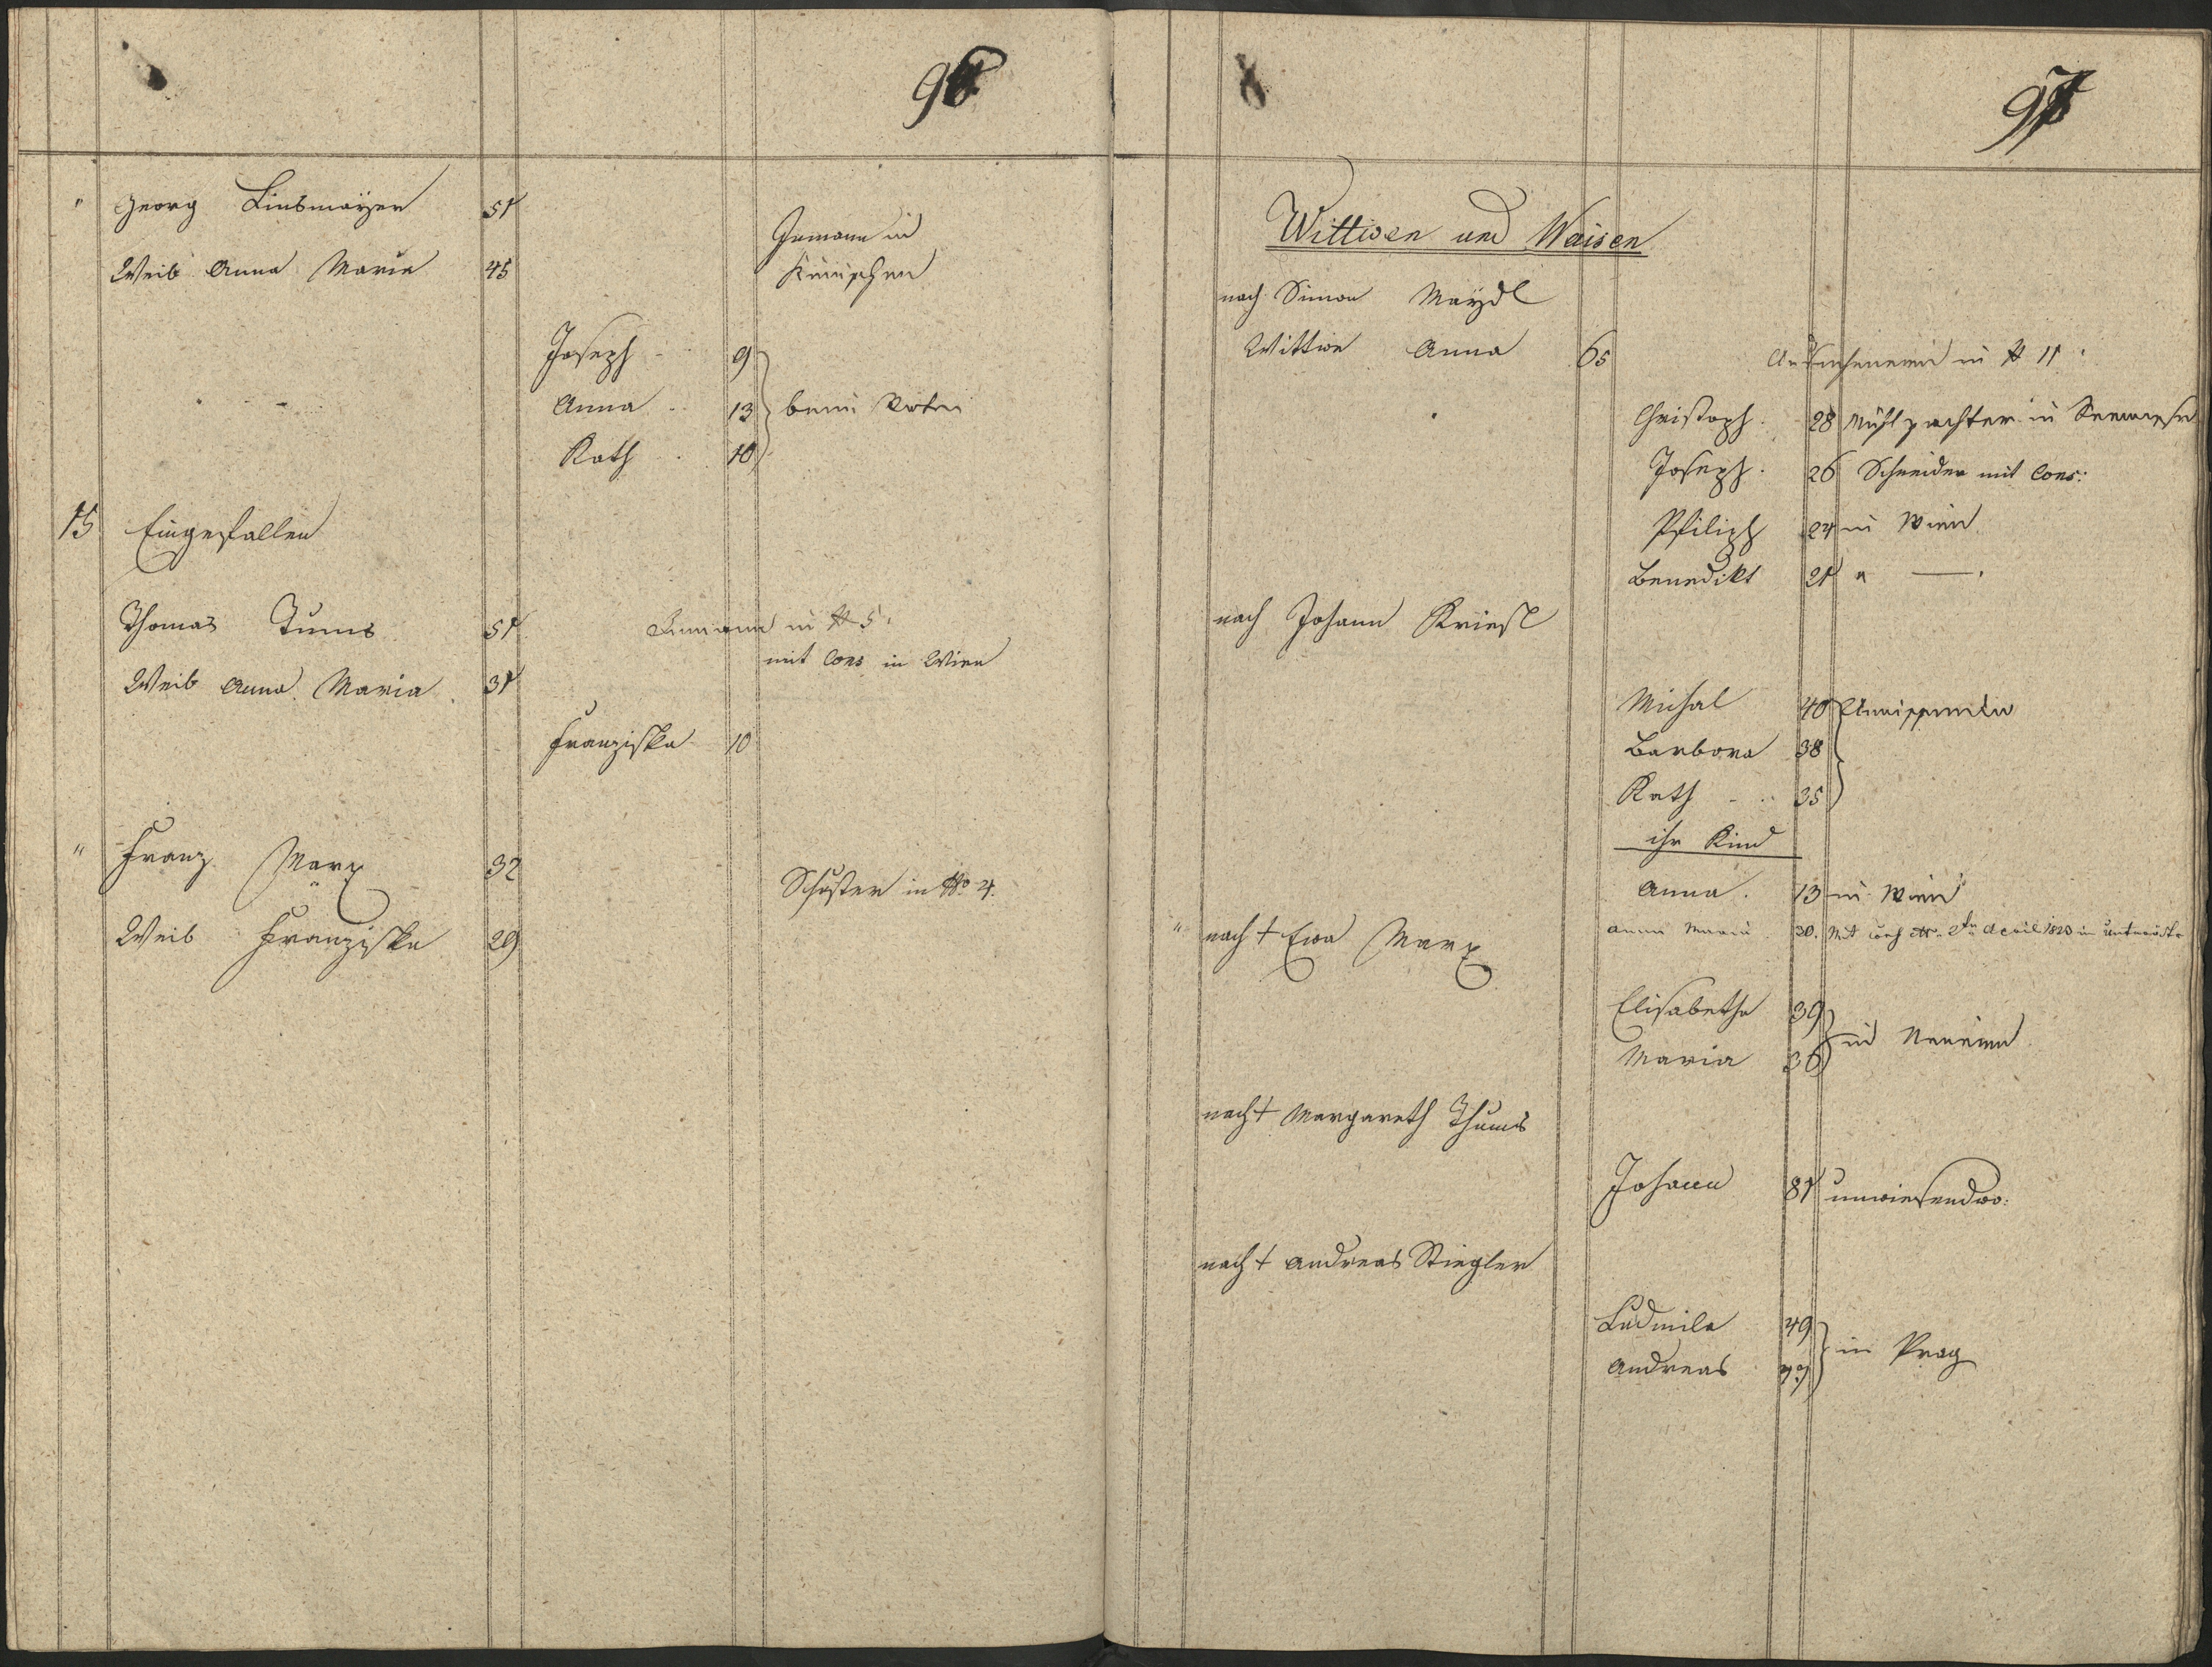 96
" Georg Linsmayer 51
Inmann in
Weib Anna Maria 45
Joseph 9
Anna 13 beim Vater
Kath 10
15 Eingefallen
Thomas Tums 51 Inmann in № 5.
mit Cons in Wien
Weib Anna Maria 31
Franziska 10
" Franz Marx 32
Schuster in № 4.
Weib Franziska 29
97
Wittwen und Waisen
nach Simon Maydl
Wittwe Anna 65 in № 11
Christoph 28 Mühlpachter in
Joseph 26 Schneider mit Cons:
Philipp 24 in Wien
Benedikt 21 " —
nach Johann Kriesl
Michal 40
Barbora 38
Kath 35
ihr Kind
Anna 13 in Wien
" nach † Eva Marx
Anna Maria 30. Mit April 1823 in
Elisabetha 39
Maria 36 in
nach † Margareth Thums
Johann 81 unwissend wo:
nach † Andreas Stiegler
Ludmila 49
Andreas in Prag